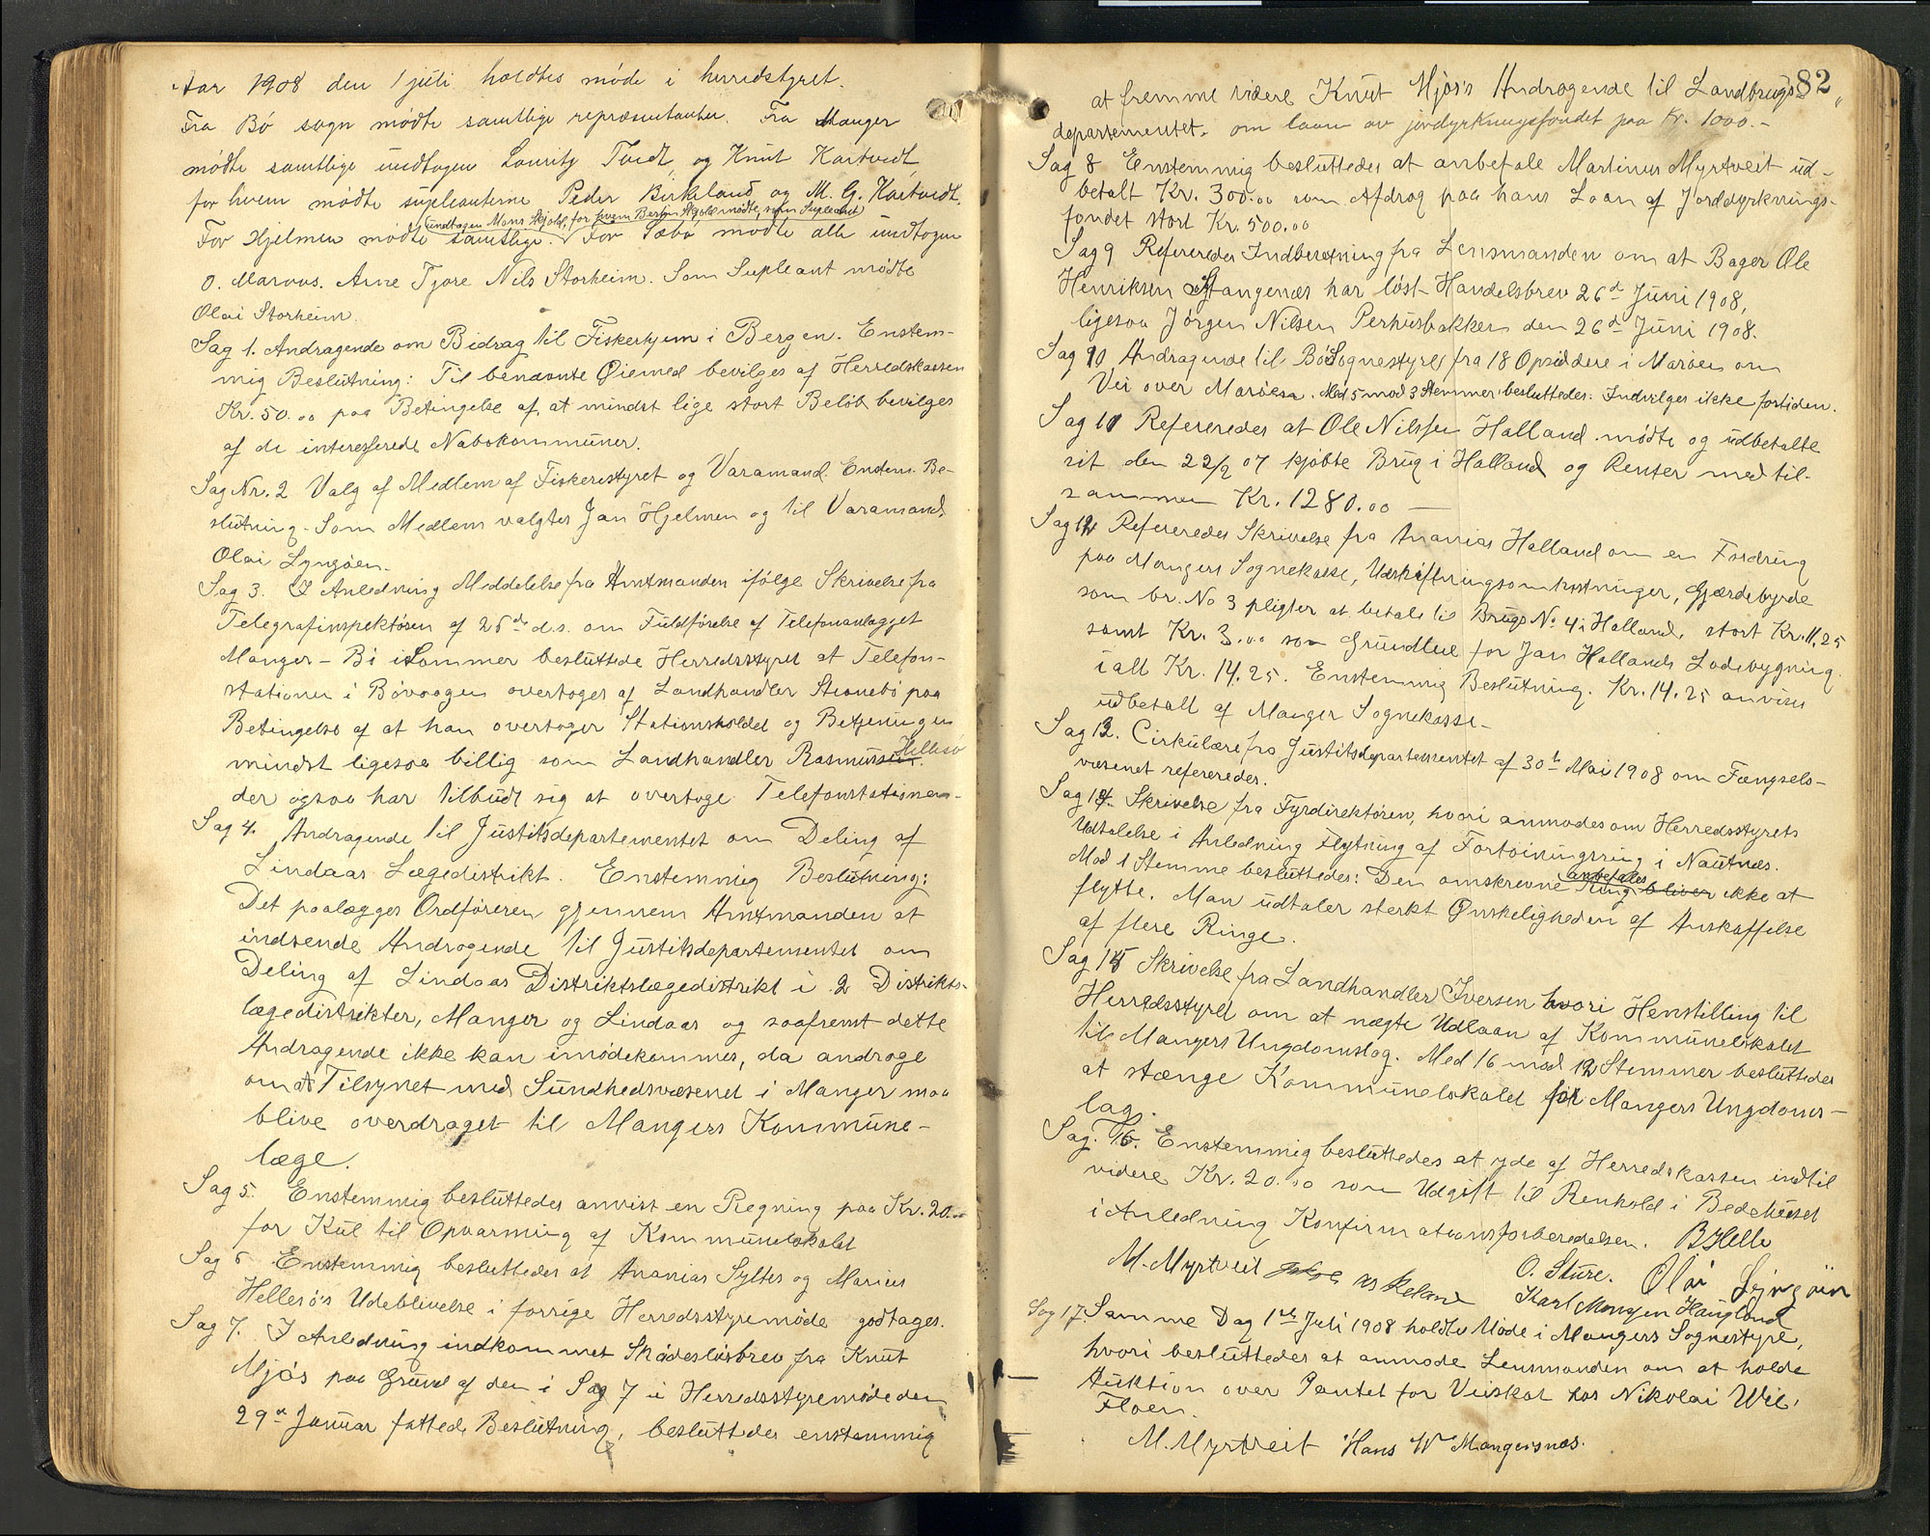 Aar 1908 den 1 juli holdtes møde i herredstyret.
Fra Bø sogn mødte samtlige repræsentanter. Fra Manger
mødte samtlige undtagen Lauritz Tvedt og Knut Kartvedt
for hvem mødte supleanterne Peder Birkeland og M. G. Kartvedt.
(undtagen Mons Skjold, for hvem Berge mødte som Supleant)
For Hjelmen mødte samtlige. For Sæbø mødte alle undtagen
O. Marøos. Arne Tjore Nils Storheim. Som Supleant mødte
Olai Storheim.
Sag 1. Andragende om Bidrag til Fiskerhjem i Bergen. Enstem-
mig Beslutning: Til benævnte Øiemed bevilges af Herredskassen
Kr. 50.00 paa Betingelse af, at mindst lige stort Beløb bevilges
af de interesserede Nabokommuner.
Sag Nr. 2 Valg af Medlem af Fiskeristyret og Varamand. Enstem. Be-
slutning. Som Medlem valgtes Jan Hjelmen og til Varamand.
Olai Lyngøen.
Sag 3. I Anledning Meddelelse fra Amtmanden ifølge Skrivelse fra
Telegrafinspektøren af 25de d.s. om Fuldførelse af Telefonanlægget
Manger - Bø i Sommer besluttede Herredsstyret at Telefon-
stationen i Bøvaagen overtages af Landhandler Stenebø paa
Betingelse af at han overtager Stationsholdet og Betjeningen
mindst ligesaa billig som Landhandler Rasmussen Hellesø
der ogsaa har tilbudt sig at overtage Telefonstationen-
Sag 4. Andragende til Justitsdepartementet om Deling af
Lindaas Lægedistrikt. Enstemmig Beslutning:
Det paalægges Ordføreren gjennem Amtmanden at
indsende Andragende til Justitsdepartementet om
Deling af Lindaas Distriktslægedistrikt i 2 Distrikts-
lægedistrikter, Manger og Lindaas og saafremt dette
Andragende ikke kan imødekommes, da andrage
om at Tilsynet med Sundhedsvæsenet i Manger maa
blive overdraget til Mangers Kommune-
læge.
Sag 5. Enstemmig besluttedes anvist en Regning paa Kr. 20.00
for Kul til Opvarming af Kommunelokalet
Sag 6 Enstemmig besluttedes at Ananias Syltes og Marius
Hellesø's Udeblivelse i forrige Herredsstyremøde godtages.
Sag 7. I Anledning indkommet Skadesløsbrev fra Knut
Mjøs paa Grund af den i Sag 7 i Herredsstyremøde den
29de Januar fattede Beslutning, besluttedes enstemmig
82
at fremme videre Knut Mjøs's Andragende til Landbrugs-
departementet. om laan av jorddyrkningsfondet paa Kr. 1000.-
Sag 8 Enstemmig besluttedes at anbefale Martinus Myrtveit ud-
betalt Kr. 300.00 som Afdrag paa hans Laan af Jorddyrknings-
fondet stort Kr. 500.00
Sag 9 Refereredes Indberetning fra Lensmanden om at Bager Ole
Henriksen Stangenæs har løst Handelsbrev 26de Juni 1908,
ligesaa Jørgen Nilsen Perhusbakken den 26de Juni 1908.
Sag 10 Andragende til Bø Sognestyre fra 18 Opsiddere i Marøen om
Vei over Marøen. Med 5 mod 3 Stemmer besluttedes: Indvilges ikke fortiden.
Sag 11 Refereredes at Ole Nilssen Halland mødte og udbetalte
sit den 22/2 07 kjøbte Brug i Halland og Renter med til-
sammen Kr. 1280.00 -
Sag 12 Refereredes Skrivelse fra Ananias Halland om en Fordring
paa Mangers Sognekasse, Udskiftningsomkostninger, Gjærdebyrde
som br. No 3 pligter at betale til Brugs No. 4 i Halland, stort Kr. 11,25
samt Kr. 3.00 som Grundleie for Jan Hallands Ladebygning.
ialt Kr. 14.25. Enstemmig Beslutning. Kr. 14.25 anvises
udbetalt af Manger Sognekasse-
Sag 13. Cirkulære fra Justitsdepartementet af 30te Mai 1908 om Fængsels-
væsenet refereredes.
Sag 14. Skrivelse fra Fyrdirektøren, hvori anmodes om Herredsstyrets
Udtalelse i Anledning Flytning af Fortøiningsring i Nautnes.
Mod 1 Stemme besluttedes: Den omskrevne Ring bliver anbefales ikke at
flytte. Man udtaler sterkt Ønskeligheden af Anskaffelse
af flere Ringe.
Sag 15 Skrivelse fra Landhandler Iversen hvori Henstilling til
Herredsstyret om at nægte Udlaan af Kommunelokalet
til Mangers Ungdomslag. Med 16 mod 12 Stemmer besluttedes
at stænge Kommunelokalet for Mangers Ungdoms-
lag.
Sag. 16. Enstemmig besluttedes at yde af Herredskassen indtil
videre Kr. 20.00 som Udgift til Renhold i Bedehuset
i Anledning Konfirmationsforberedelsen. B Helle
M. Myrtveit Askeland O. Sture. Olai Lyngøen
Karl Mongsen Haugland
Sag 17. Samme Dag 1ste Juli 1908 holdtes Møde i Mangers Sognestyre,
hvori besluttedes at anmode Lensmanden om at holde
Auktion over Pantet for Veiskat hos Nikolai Wil.
Floen.
M. Myrtveit Hans W Mangersnæs.